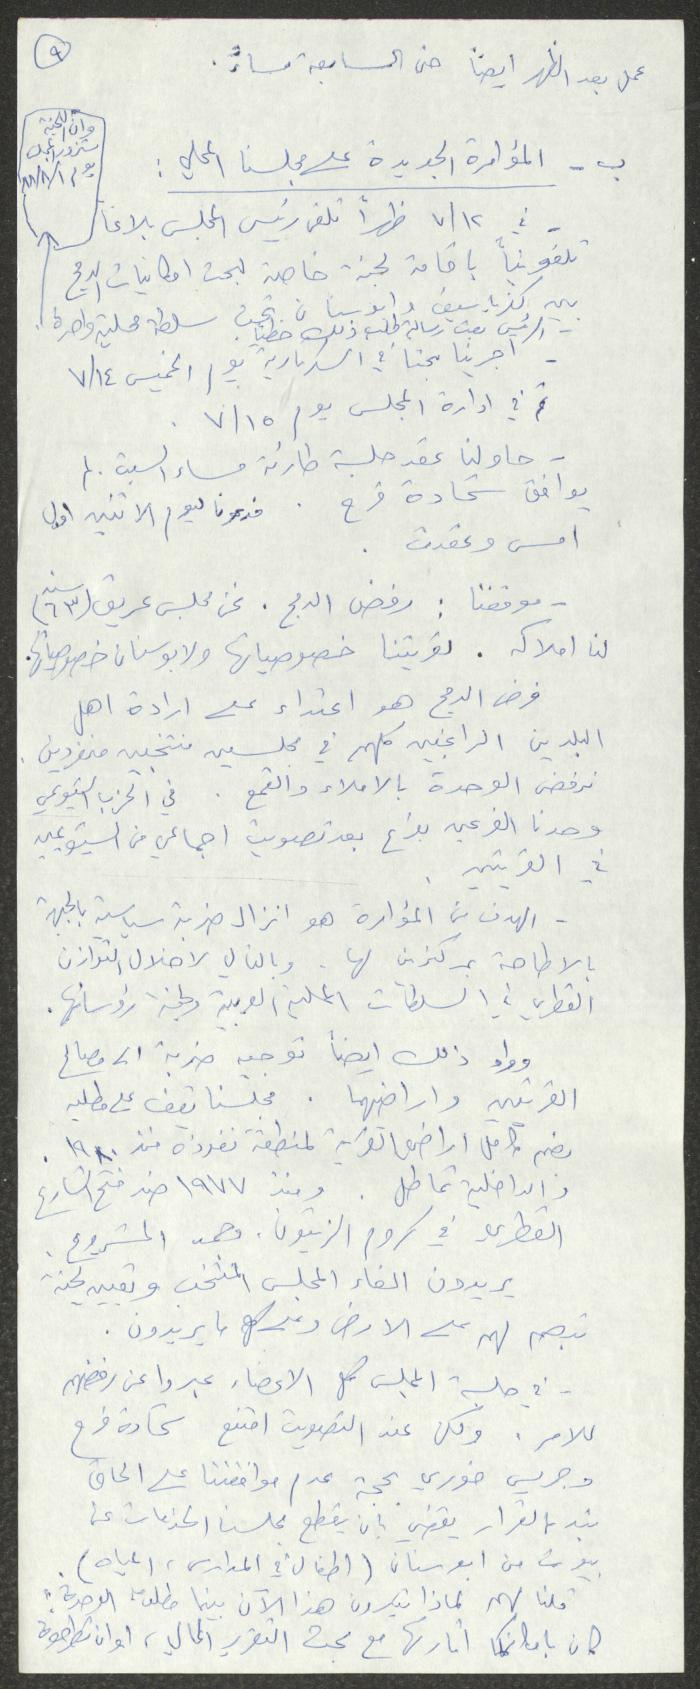 ٩
عمل بعد الظهر ايضاً حتى السابعة مساءً.
وان اللجنة
ستزور المجلس
يوم ٨٨/٨/١
ب - المؤامرة الجديدة على مجلسنا المحلي :
- في ٧/١٢ ظهراً تلقى رئيس المجلس بلاغاً
تلفونياً باقامة لجنة خاصة لبحث امكانيات الدمج
بين كفرياسيف وابوسنان تحت سلطة محلية واحدة.
- الرئيس بعث رسالة لطلب ذلك خطياً.
- اجرينا بحثاً في السكرتارية يوم الخميس ٧/١٤
ثم في ادارة المجلس يوم ٧/١٥ .
- حاولنا عقد جلسة طارئة مساء السبت. لم
يوافق شحادة فرح . فدعونا ليوم الاثنين اول
امس وعقدت .
- موقفنا : رفض الدمج . نحن مجلس عريق (٦٣ سنة)
لنا املاكه . لقريتنا خصوصياتها ولابوسنان خصوصياتها.
فرض الدمج هو اعتداء على ارادة اهل
البلدين الراغبين كلهم في مجلسين منتخبين منفردين .
نرفض الوحدة بالاملاء والقمع . في الحزب الشيوعي
وحدنا الفرعين بفرع بعد تصويت اجماعي من الشيوعيين
في القريتين .
- الهدف من المؤامرة هو انزال ضربة سياسية بالجبهة
بالاطاحة بمركزين لها . وبالتالي لاخلال التوازن
القطري في السلطات المحلية العربية ولجنة رؤسائها .
وراء ذلك ايضاً توجيه ضربة الى مصالح
القريتين واراضيهما . مجلسنا يقف على مطلبه
بضم كامل اراضي القرية لمنطقة نفوذه منذ ١٩٨٠ .
والداخلية تماطل . ومنذ ١٩٧٧ ضد فتح الشارع
القطري في كروم الزيتون . وجمد المشروع .
يريدون الغاء المجلس المنتخب وتعيين لجنة
تبصم لهم على الارض وعلى كل ما يريدون .
- في جلسة المجلس كل الاعضاء عبروا عن رفضهم
للامر . ولكن عند التصويت امتنع شحادة فرح
وجريس خوري بحجة عدم موافقتنا على الحاق
بند بالقرار يقضي بان يقطع مجلسنا الخدمات عن
بيوت من ابوسنان (اطفال في المدارس ، المياه) .
قلنا لهم لماذا تثيرون هذا الآن بينما مطلوب الوحدة ؛
كان بامكانكما اثارتها مع بحث التقرير المالي ، او ان تطرحوه